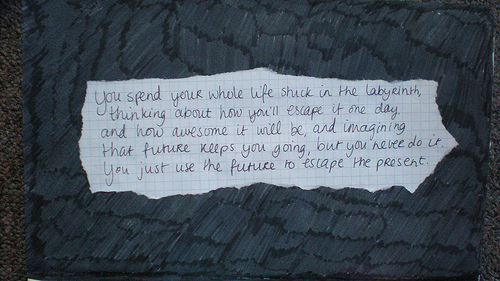 You spend your whole life stuck in the labyrinth,
thinking about how you'll escape it one day
and how awesome it will be, and imagining
that future keeps you going, but you never do it.
You just use the future to escape the present.